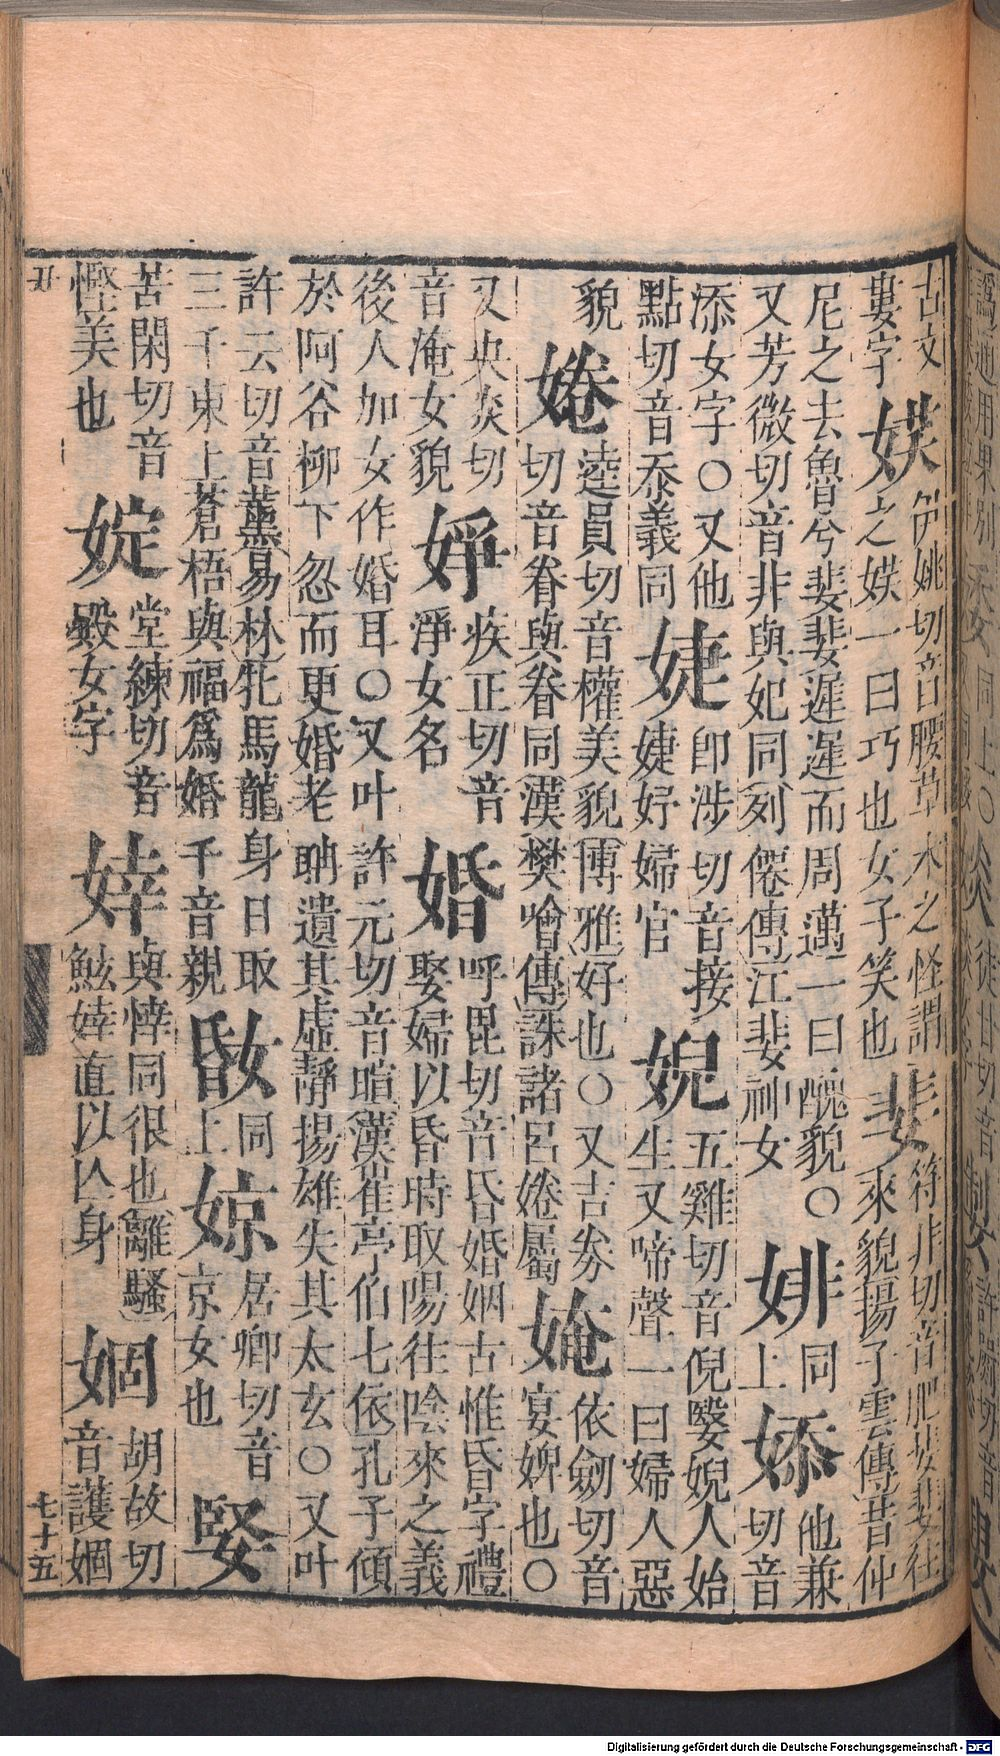 古文婁字𡝩於姚切音腰草木之怪謂之𡝩一曰巧也女子笑也婓符非切音肥婓婓往來貌揚子雲傳昔仲
尼之去魯兮婓婓遲遲而周邁一曰醜貌〇又芳微切音非與妃同列僊傳江婓神女婔同上婖他兼切音
添女字〇又他點切音忝義同婕即涉切音接婕妤婦官婗五雞切音倪嫛婗人始生又啼聲一曰婦人惡
貌婘逵員切音權美貌博雅好也〇又古劵切音眷與眷同漢樊噲傳誅諸呂婘屬㛪依劒切音宴婢也〇
又央炎切音淹女貌婙疾正切音淨女名婚呼毘切音昏婚姻古惟昏字禮娶婦以昏時取陽往陰來之義
後人加女作婚耳〇又叶許元切音暄漢崔亭伯七依孔子傾於阿谷柳下忽而更婚老聃遺其虛靜揚雄失其太玄〇又叶
許云切音薰易林牝馬龍身日取三千東上蒼梧與福爲婚千音親同上婛居卿切音京女也婜
苦閑切音慳美也婝堂練切音殿女字婞與悻同很也離騷鮌婞直以亾身婟胡故切音護婟
丑
七十五
Digitalisierung gefördert durch die Deutsche Forschungsgemeinschaft - DFG